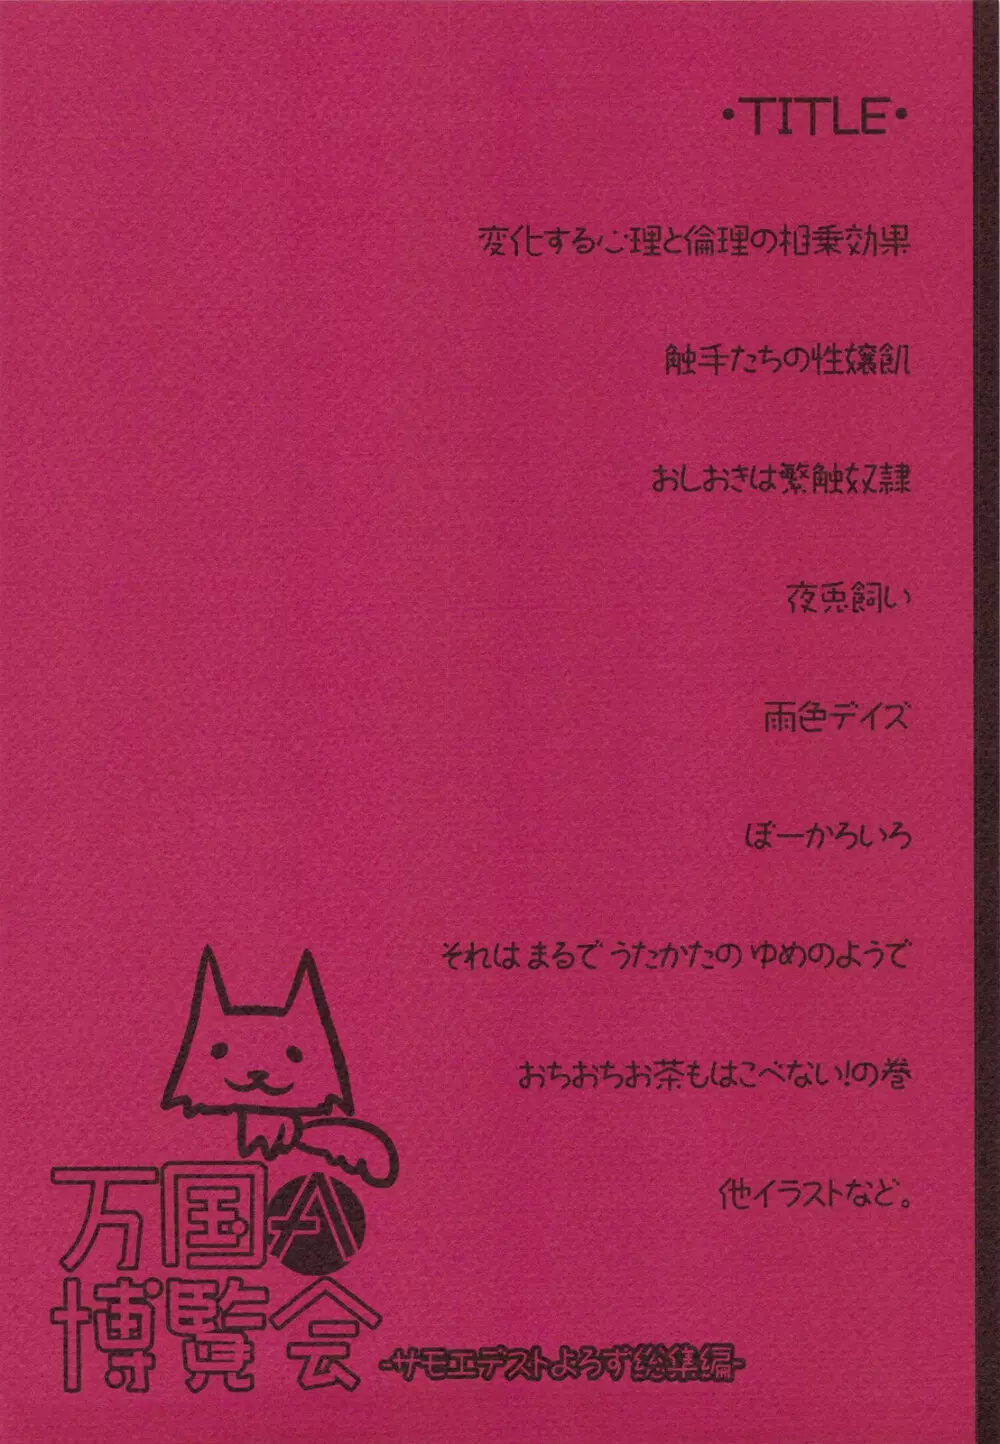 ・TITLE・
変化する心理と倫理の相乗効果
触手たちの性嬢飢
おしおきは繁触奴隷
夜兎飼い
雨色デイズ
ぼーかろいろ
それは まるで うたかたの ゆめのようで
おちおちお茶もはこべない!の巻
他イラストなど。
万国A
博覧会
-サモエデストよろず総集編-